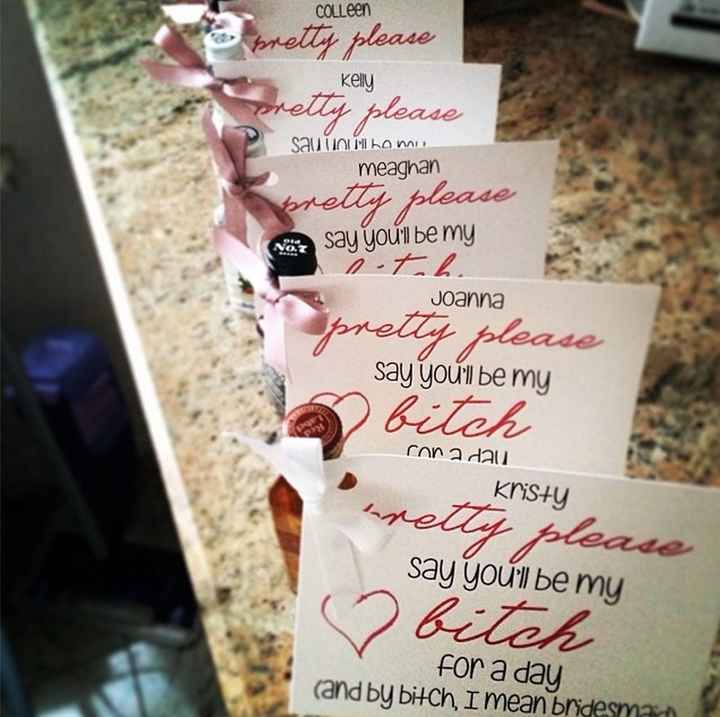 colleen
pretty please
kelly
pretty please
say you'll be my
meaghan
pretty please
say you'll be my
bitch
Old
No.7
BRAND
Joanna
pretty please
say you'll be my
bitch
for a day
Red
Label
Kristy
pretty please
say you'll be my
bitch
for a day
(and by bitch, I mean bridesmaid)